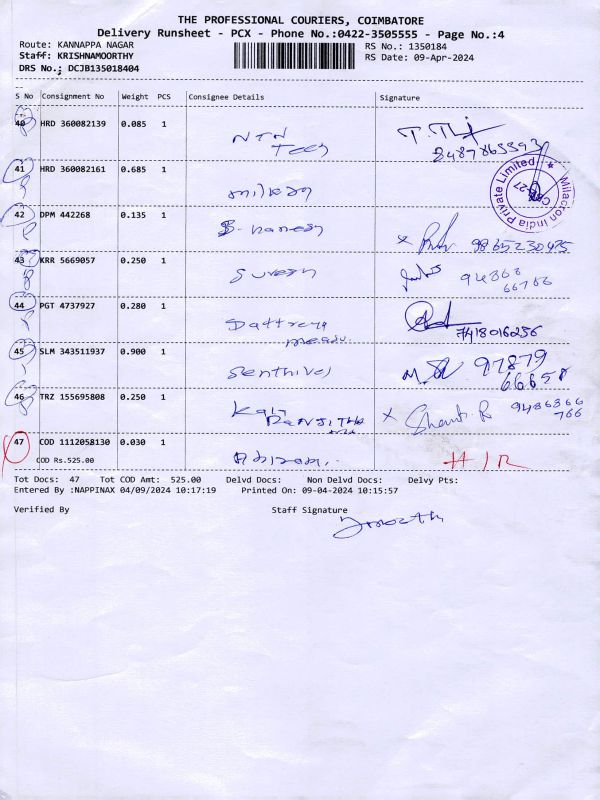 THE PROFESSIONAL COURIERS, COIMBATORE
Delivery Runsheet - PCX - Phone No.:0422-3505555 - Page No.:4
Route: KANNAPPA NAGAR
Staff: KRISHNAMOORTHY
DRS No.: DCJB135018404
RS No.: 1350184
RS Date: 09-Apr-2024
S No Consignment No Weight PCS Consignee Details Signature
40 HRD 360082139 0.085 1
NTN
8487865593
41 HRD 360082161 0.685 1
Milacron India Private Limited
CBE-27
42 DPM 442268 0.135 1
9865230475
43 KRR 5669057 0.250 1
Suresh
94868
66766
44 PGT 4737927 0.280 1
7418016256
45 SLM 343511937 0.900 1
Senthivel
97879
66658
46 TRZ 155695808 0.250 1
9486866
766
47 COD 1112058130 0.030 1
COD Rs.525.00
Tot Docs: 47 Tot COD Amt: 525.00 Delvd Docs: Non Delvd Docs: Delvy Pts:
Entered By :NAPPINAX 04/09/2024 10:17:19 Printed On: 09-04-2024 10:15:57
Verified By Staff Signature